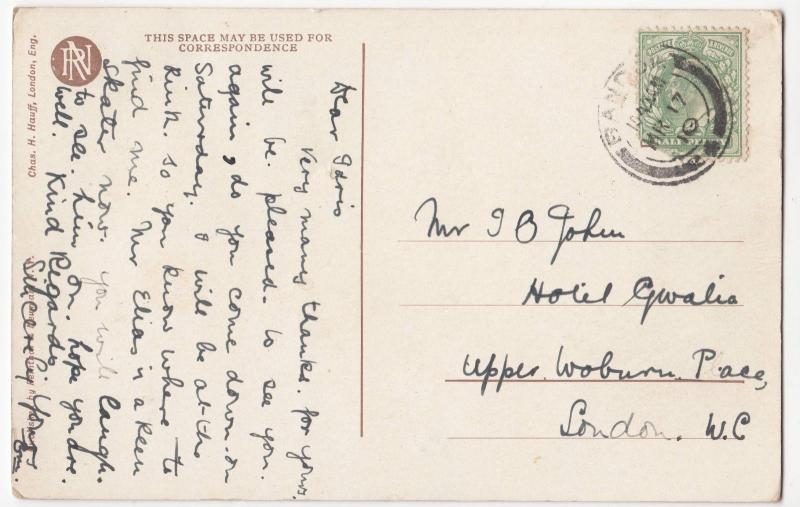 THIS SPACE MAY BE USED FOR
CORRESPONDENCE
Chas. H. Hauff, London, Eng.
Dear Idris
Very many thanks. for yours.
will be pleased. to see you.
again, do you come down. on
Saturday. I will be at the
Rink. so you know where to
find me. Mr Elias is a keen
skater now. you will laugh.
to see. him on. hope you are.
well. Kind Regards.
Sincerely Yours
Mr I B John
Hotel Gwalia
Upper. Woburn. Pace,
London. W.C
MR 17
10